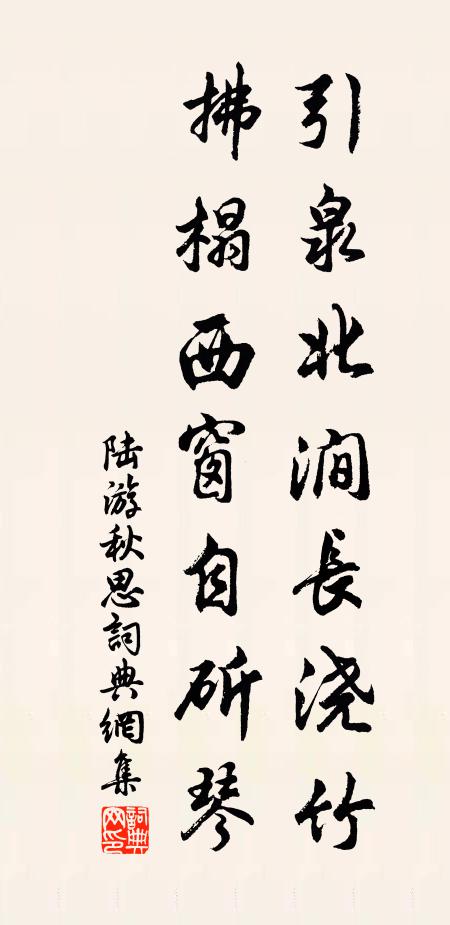 引泉北澗長浇竹
拂榻西窗自斫琴
陆游秋思詞典網集
詞典网印